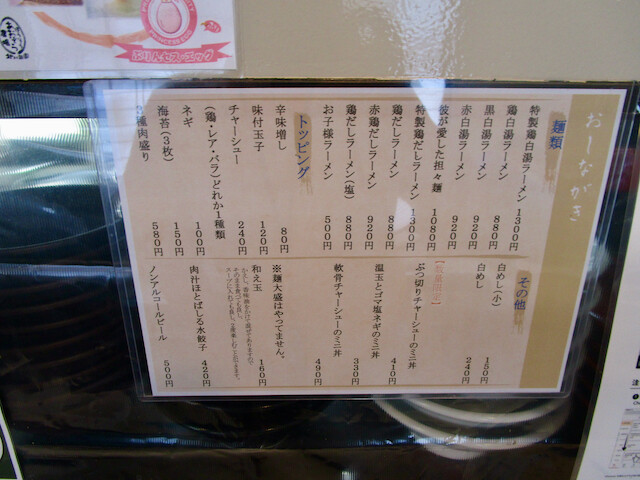 おしながき
麺類
特製鶏白湯ラーメン 1300円
鶏白湯ラーメン 880円
黒白湯ラーメン 920円
赤白湯ラーメン 920円
彼が愛した担々麺 1080円
特製鶏だしラーメン 1300円
鶏だしラーメン 880円
赤鶏だしラーメン 920円
鶏だしラーメン(塩) 880円
お子様ラーメン 500円
トッピング
辛味増し 80円
味付玉子 120円
チャーシュー 240円
(鶏・レア・バラ)どれか1種類
ネギ 100円
海苔(3枚) 150円
3種肉盛り 580円
その他
白めし(小) 150円
白めし 240円
【数量限定】
ぶつ切りチャーシューのミニ丼 410円
温玉とゴマ塩ネギのミニ丼 330円
軟骨チャーシューのミニ丼 490円
※麺大盛はやってません。
和え玉 160円
肉汁ほとばしる水餃子 420円
ノンアルコールビール 500円
ぷりんセス・エッグ